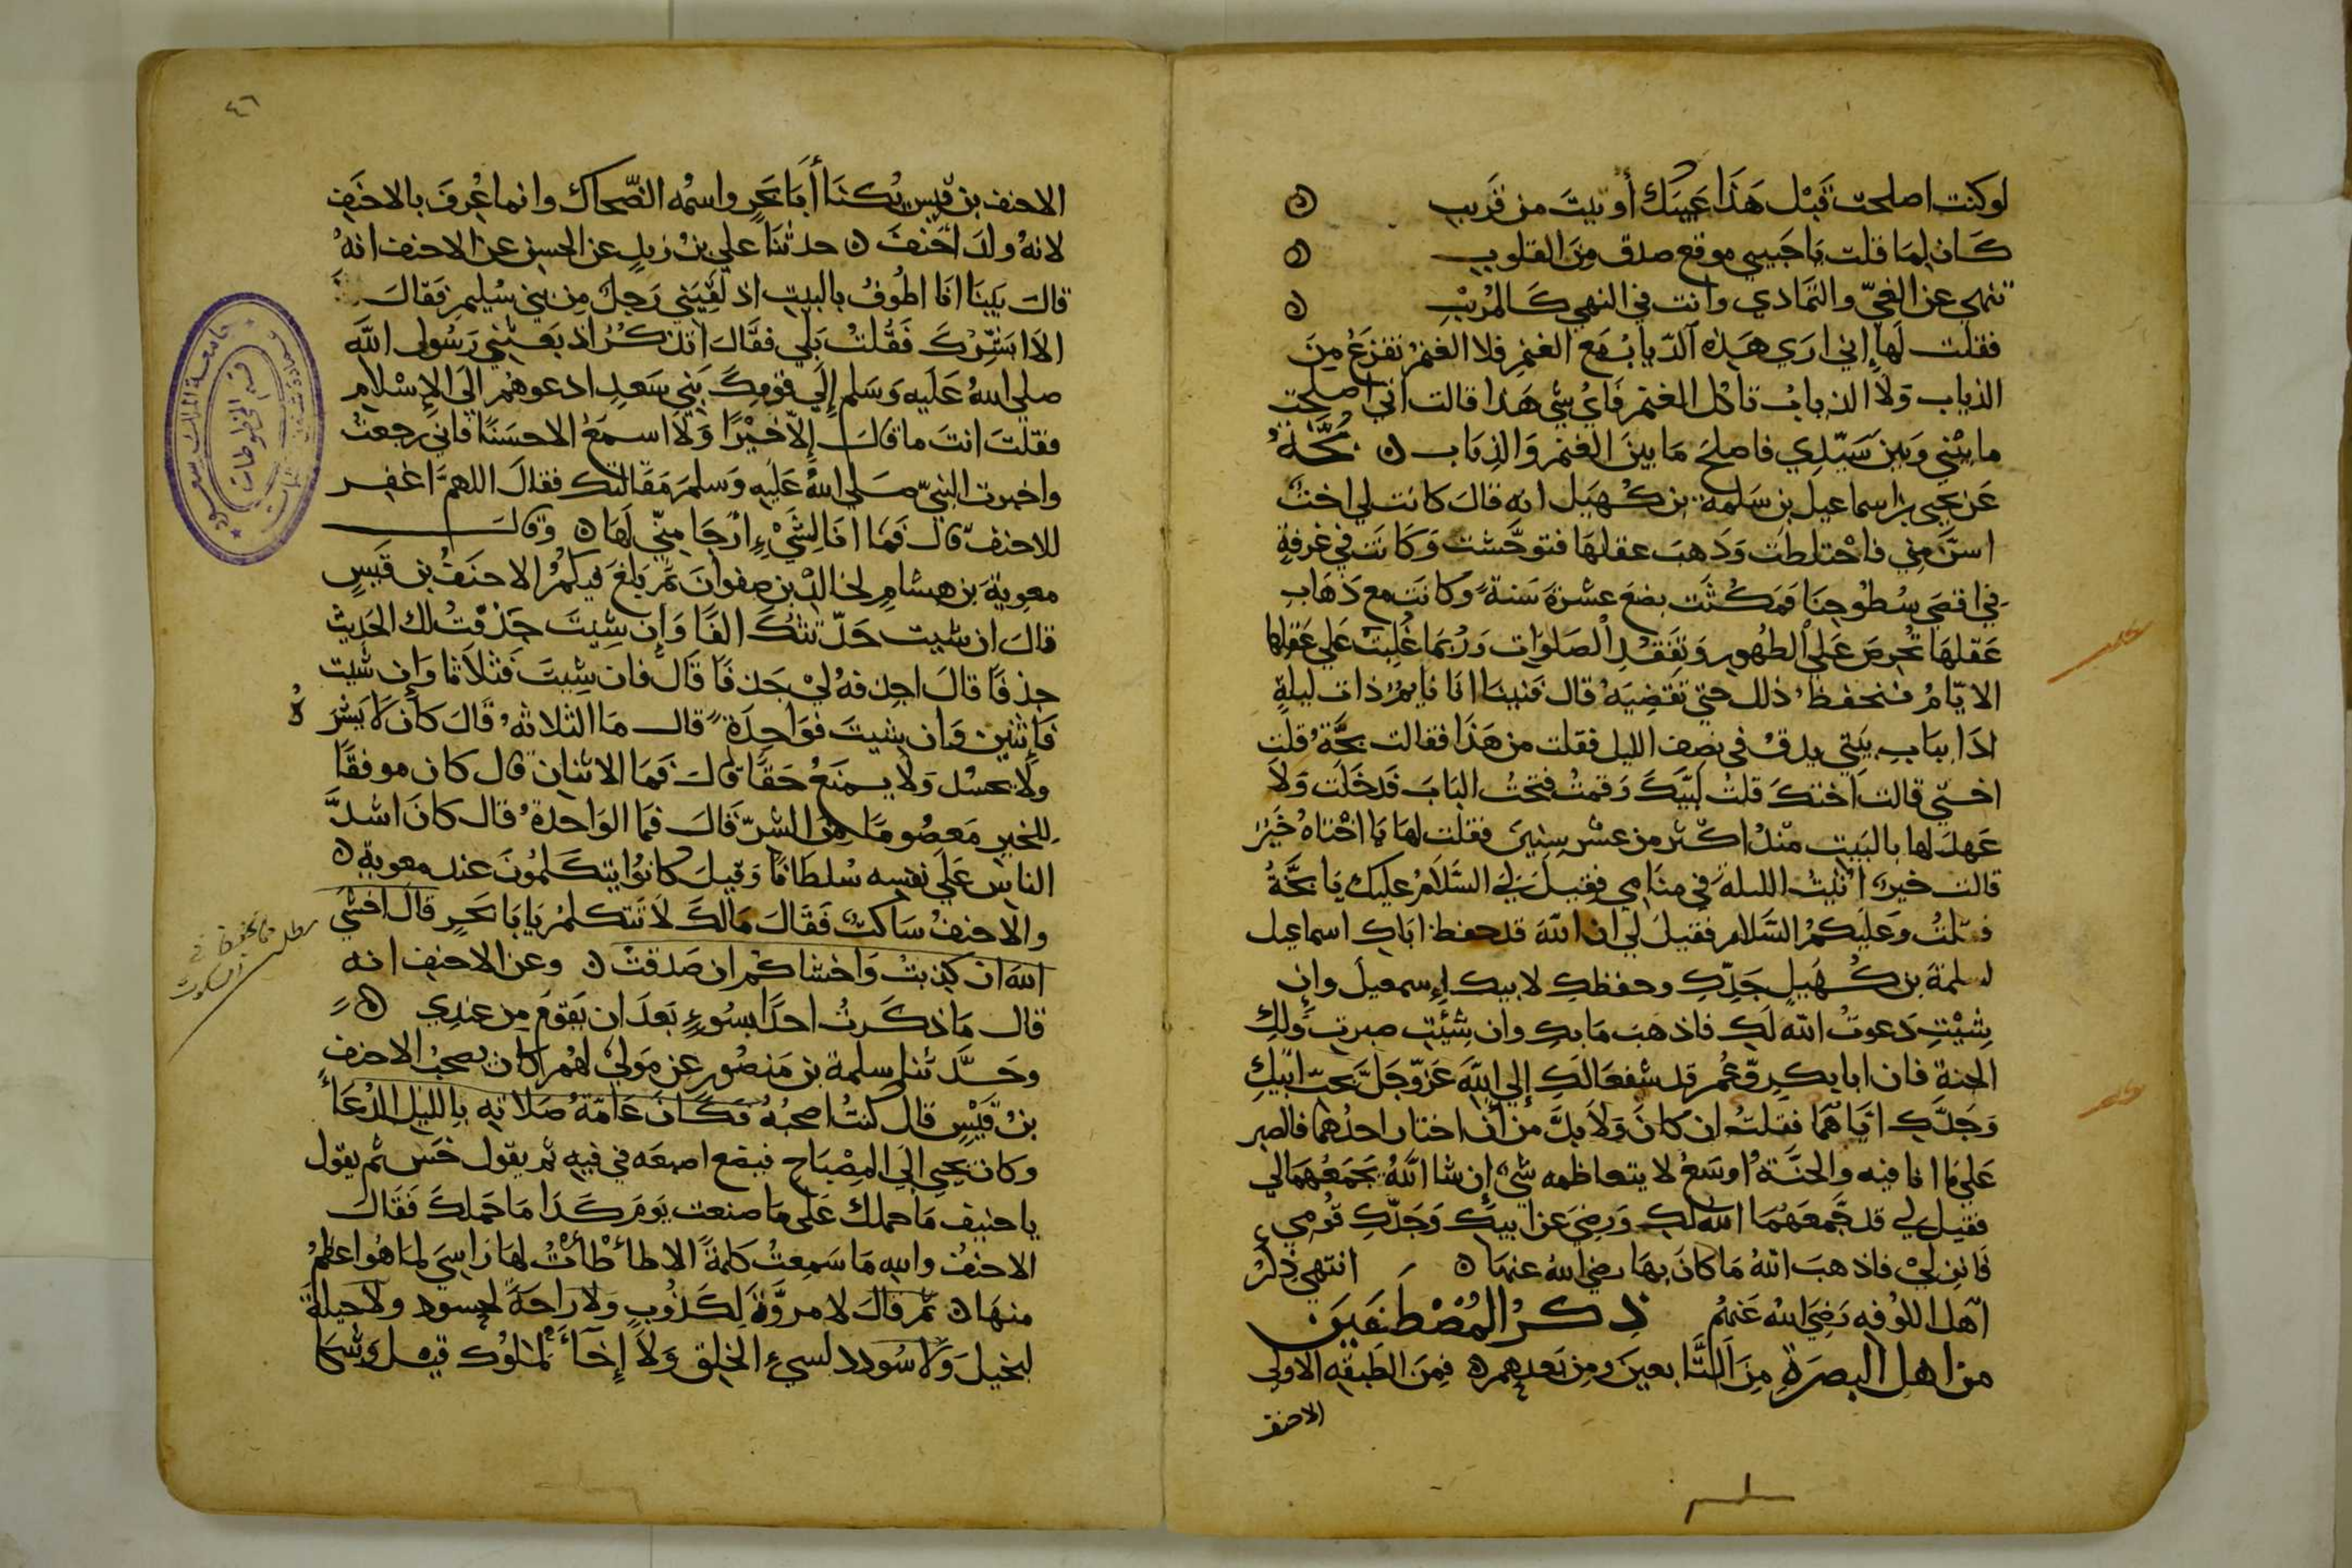 لو كنت اصلحت قَبْل هَذَا عَيبَك أو تبتَ من قَريبِ ۞
كَان لِمَا قلت يَا حَبيبي موقع صدق مِنَ القلوبِ ۞
تنهي عن الغيّ والتمَادي وانت في النهي كَالمُريْبِ ۞
فقلت لَها إني ارَي هَذِه الذيابُ مَع الغنم فلا الغنمُ تفزَعُ مِنَ
الذياب وَلَا الذيابُ تاكل الغنم فَايُ شي هَذا قالت اني اصلحت
ما بيْني وَبينَ سَيّدِي فاصلحَ مَا بينَ الغنم وَالذيَاب ۞ بَخَّةُ
عَن يحيى بن اسماعيل بن سَلمة بن كُهَيل انه قالَ كانت لي اختٌ
اسنَّ مِني فاخْتلطت وَذهبَ عقلهَا فتوحَّشت وَكَانَت في غرفةٍ
في اقصَي سُطُوحِنَا فَمَكُثَت بضعَ عشرَةَ سَنةً وكانت مع ذَهَابِ
عَقلهَا تحرصَ عَلي الطهُورِ وَتفَقُدِ الصَلوَات وَرُبمَا غُلِبَتْ عَلي عَقلها
الايّامُ فنحفظ ذلك حتي تَقضِيَه قال فَبَينَا انا نايمُ ذات ليلةٍ
اذَا ببَابِ بَيتي يدقُ في نصف الليل فقلت من هَذَا فقالت بخَّةُ قلت
اختي قالت اختكَ قلتُ لبَّيكَ وَقمتُ ففتحتُ البَابَ فَدَخَلَت وَلَا
عَهدَ لها بالبَيتِ مُنذُ اكثر من عشر سنينَ فقلت لها يَا اخْتاهُ خَيرَ
قالت خير اتيتُ الليلة في منَامي فقيلَ لي السَّلَامُ عليك يَا بخَّةُ
فقلتُ وَعَليكمُ السَّلام فقيلَ لي ان اللّهَ قد حفظ ابَاكِ اسماعيل
لسلمةَ بن كُهَيلٍ جَدِّكِ وحفظكِ لابيك إسمعيلَ وان
شِيْتِ دَعوتُ الله لَكِ فاذهَبَ مَا بكِ وان شِئْتِ صبرتِ وَلكِ
الجنة فان ابا بكرٍ وعُمر قد شفعَا لَكِ إلي اللّهَ عَزّوجَلّ بحبّ ابيكِ
وَجَدِّكِ اياهمَا فقلتُ ان كانَ وَلَا بدَّ من ان اختار احدُهما فالصبر
عَلي مَا انا فيه والجنَّة اوسَعُ لا يتعاظمه شيٌ إن شا اللّهُ يجمَعُهمَا لي
فقيل لي قد جَمعَهُما اللّه لكِ وَرضِيَ عن ابيكِ وَجَدّكِ قومي
فَانزلي فاذهبَ اللّهُ مَا كانَ بهَا رضي اللهُ عنهَا ۞ انتهي ذِكرُ
اهل الكوفه رَضِيَ اللهُ عَنهُم ذِكرُ المُصْطَفَين
من اهل البصرَةِ مِنَ التَّابعينَ ومِن بَعدهم ۞ فِمَنَ الطَبَقةِ الاولى
الاحنف
٤٦
الاحنف بن قيس يُكنَا أبَا بَحرٍ واسمُه الضّحاك وانما عُرِفَ بالاحنَفِ
لانهُ ولدَ احنفَ ۞ حدثنَا علي بنُ زيدٍ عن الحسن عن الاحنف انهُ
قالَ بَينَا انا اطُوفُ بالبيتِ اذ لقيَني رَجلٌ مِن بني سُليم فقالَ
الاَ ابَشِّرُكَ فَقُلتُ بَلي فقَالَ اتذكُرُ اذ بَعَثني رَسُول اللّه
صلي اللهُ عَلَيه وَسَلم إلَي قومِكَ بَني سَعدِ ادعوهُم إلَي الإسلامِ
فقلتَ انتَ ما قالَ إلّا خَيْرًا وَلَا اسمَعُ الاحسَنًا فاني رجعتُ
واخبرت النبيّ صَلي اللهُ عَليه وَسلم مقالتك فقالَ اللهمّ اغفر
للاحنف قال فَمَا انا لِشَيْءٍ ارْجَا مِنّي لَهَا ۞ وَقالَ
معوِيةَ بن هشامٍ لخالد بن صفوان بمَ بلغَ فيكمُ الاحنفُ بن قَيسٍ
قالَ ان شيت حَدّثتكَ الفًا وَإن شِيتَ حَذفْتُ لك الحَديث
حذفًا قالَ احذفهُ لِيْ حَذفًا قَال فان شِيتَ فثلاثًا وَإن شيت
فَإثنين وَان شيتَ فوَاحِدَةً قال مَا الثلاثهُ قَالَ كانَ لَا يَشرَهُ
ولا يحسُد وَلَا يمنَعُ حَقًا قالَ فَمَا الاثنان قال كان موفقًا
للخير مَعصُومًا مِنَ الشرّ قالَ فمَا الوَاحدةُ قال كانَ اشدَّ
الناس عَلَي نفسِه سُلطانًا وَقيلَ كانوُا يتكَلمُونَ عند معوية ۞
والاحنفُ سَاكتٌ فَقَالَ مَالكَ لَا تَتكلمُ يَا بَا بَحرٍ قالَ اخشَي
اللهَ ان كذبتُ وَاخشاكم ان صَدقتْ ۞ وعن الاحنف انه
قال مَا ذكَرتُ احدًا بسُوءٍ بَعدَ ان يَقومَ مِن عندِي ۞
وحَدَّثنا سلمة بن مَنصُور عن مَوليً لهُم كان يصحبُ الاحنف
بنُ قَيْسٍ قال كنتُ اصحبُهُ فكَانَ عَامّةُ صَلَاتِهِ بِالليل الدُعَاءُ
وكان يجي الَي المِصْبَاح فيضع اصبعَه في فيهِ ثم يقول حَسّ ثم يقول
يا حنيف مَا حملك عَلى مَا صنعت يَومَ كَذَا مَا حَمَلكَ فَقَالَ
الاحنفُ واللهِ مَا سَمِعتُ كلمةً الا طاطأتُ لهَا رَاسِيَ لمَا هُوَ اعظمُ
منهَا ۞ ثم قالَ لا مروَّةَ لِكَذُوبٍ ولا رَاحَةَ لحسود ولا حيلةَ
لبخيلَ وَلَا سُودد لسيءِ الخلقِ وَلَا إخَآءَ لملُوكٍ قيل وَشكا